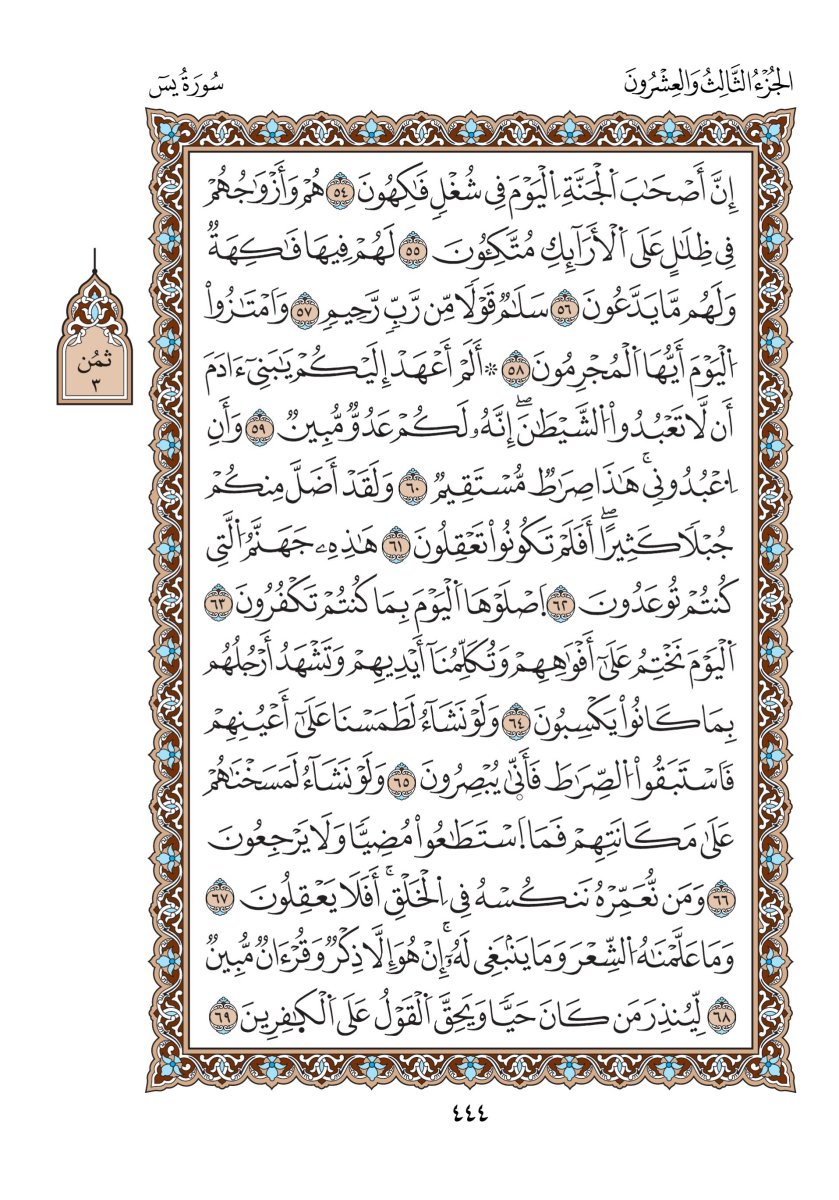 الجُزْءُ الثَّالِثُ وَالعِشْرُونَ
سُورَةُ يسٓ
إِنَّ أَصْحَٰبَ اَ۬لْجَنَّةِ اِ۬لْيَوْمَ فِے شُغْلٖ فَٰكِهُونَ ٥٤ هُمْ وَأَزْوَٰجُهُمْ
فِے ظِلَٰلٍ عَلَى اَ۬لْأَرَآئِكِ مُتَّكِـُٔونَ ٥٥ لَهُمْ فِيهَا فَٰكِهَةٌ
وَلَهُم مَّا يَدَّعُونَ ٥٦ سَلَٰمٌ قَوْلٗا مِّن رَّبّٖ رَّحِيمٖ ٥٧ وَامْتَٰزُواْ
اُ۬لْيَوْمَ أَيُّهَا اَ۬لْمُجْرِمُونَ ٥٨ ۞ أَلَمْ أَعْهَدْ إِلَيْكُمْ يَٰبَنِےٓ ءَادَمَ
أَن لَّا تَعْبُدُواْ اُ۬لشَّيْطَٰنَۖ إِنَّهُۥ لَكُمْ عَدُوّٞ مُّبِينٞ ٥٩ وَأَنِ
اِ۟عْبُدُونِےۚ هَٰذَا صِرَٰطٞ مُّسْتَقِيمٞ ٦٠ وَلَقَدْ أَضَلَّ مِنكُمْ
جُبْلٗا كَثِيراًۖ أَفَلَمْ تَكُونُواْ تَعْقِلُونَ ٦١ هَٰذِهِۦ جَهَنَّمُ اُ۬لَّتِے
كُنتُمْ تُوعَدُونَ ٦٢ اَ۪صْلَوْهَا اَ۬لْيَوْمَ بِمَا كُنتُمْ تَكْفُرُونَ ٦٣
اَ۬لْيَوْمَ نَخْتِمُ عَلَىٰٓ أَفْوَٰهِهِمْ وَتُكَلِّمُنَآ أَيْدِيهِمْ وَتَشْهَدُ أَرْجُلُهُم
بِمَا كَانُواْ يَكْسِبُونَ ٦٤ وَلَوْ نَشَآءُ لَطَمَسْنَا عَلَىٰٓ أَعْيُنِهِمْ
فَاسْتَبَقُواْ اُ۬لصِّرَٰطَ فَأَنّ۪ىٰ يُبْصِرُونَ ٦٥ وَلَوْ نَشَآءُ لَمَسَخْنَٰهُمْ
عَلَىٰ مَكَانَتِهِمْ فَمَا اَ۪سْتَطَٰعُواْ مُضِيّٗا وَلَا يَرْجِعُونَ
٦٦ وَمَن نُّعَمِّرْهُ نَنكُسْهُ فِے اِ۬لْخَلْقِۚ أَفَلَا يَعْقِلُونَ ٦٧
وَمَا عَلَّمْنَٰهُ اُ۬لشِّعْرَ وَمَا يَنۢبَغِے لَهُۥٓۚ إِنْ هُوَ إِلَّا ذِكْرٞ وَقُرْءَانٞ مُّبِينٞ
٦٨ لِّيُنذِرَ مَن كَانَ حَيّٗا وَيَحِقَّ اَ۬لْقَوْلُ عَلَى اَ۬لْكٰ۪فِرِينَ ٦٩
ثُمُن
٣
٤٤٤